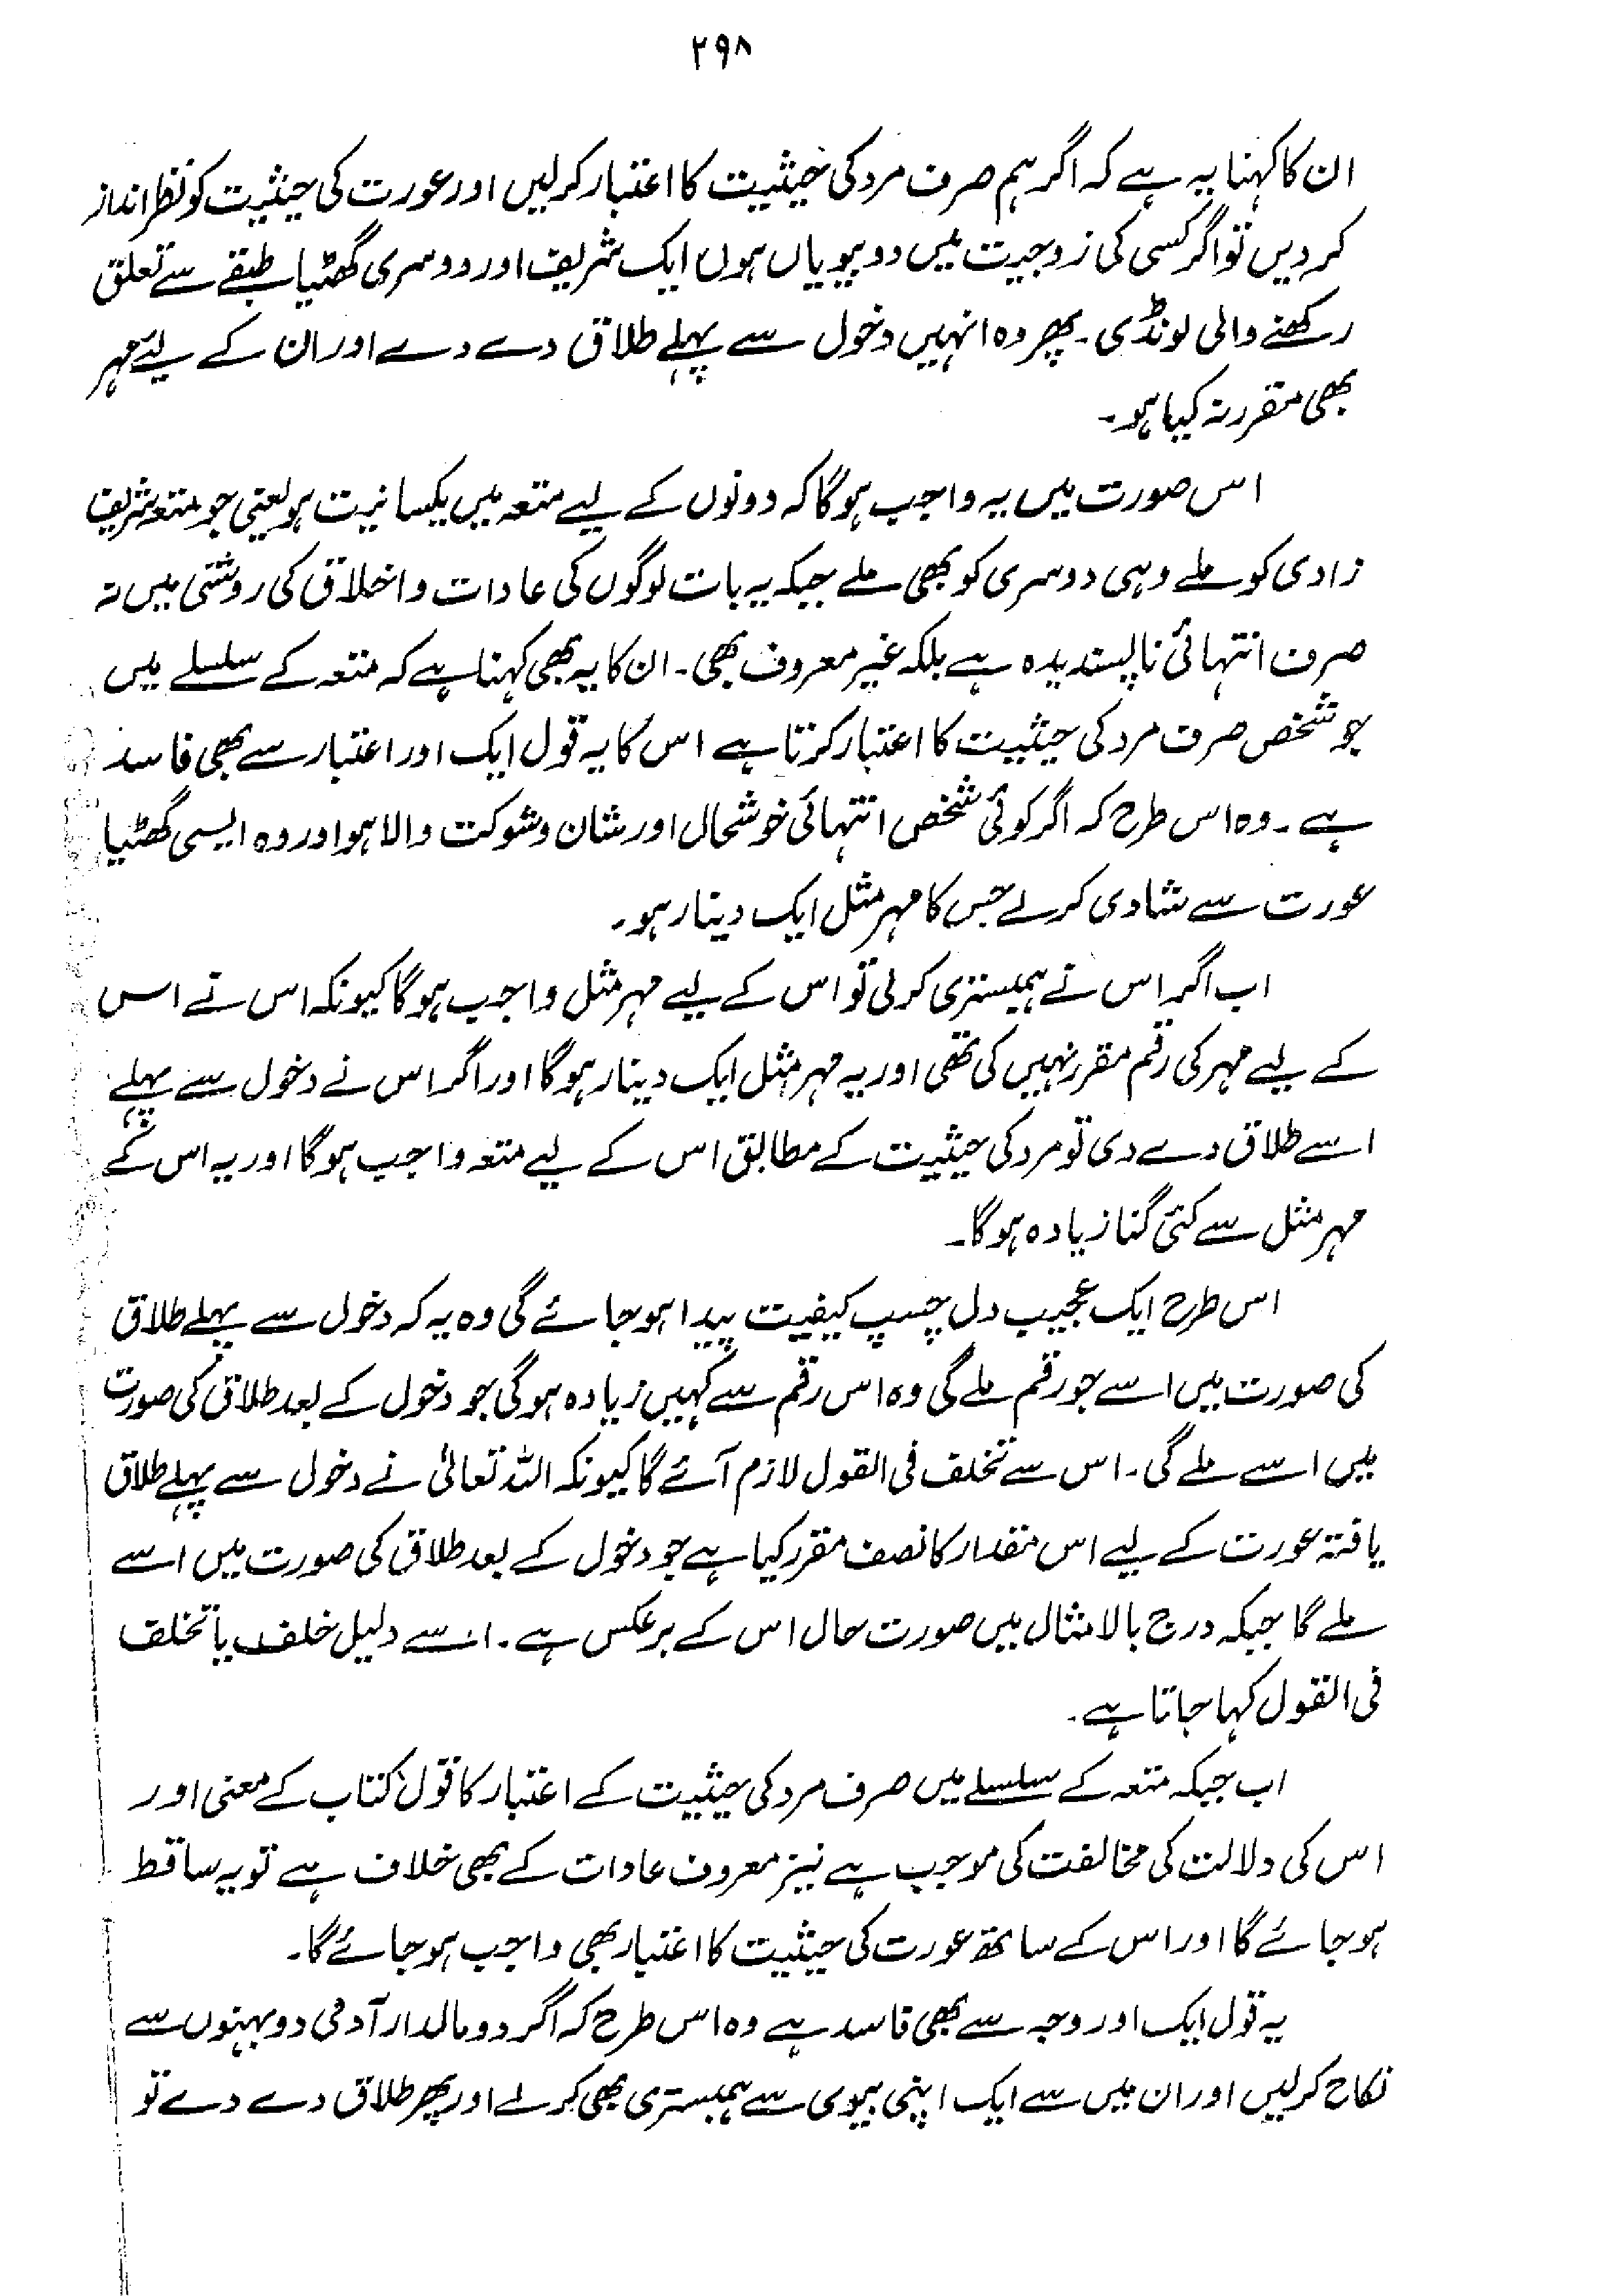 ۲۹۸
ان کا کہنا یہ ہے کہ اگر ہم صرف مرد کی حیثیت کا اعتبار کر لیں اور عورت کی حیثیت کو نظر انداز
کر دیں تو اگر کسی کی زوجیت میں دو بیویاں ہوں ایک شریف اور دوسری گھٹیا طبقے سے تعلق
رکھنے والی لونڈی۔ پھر وہ انہیں دخول سے پہلے طلاق دے دے اور ان کے لیے مہر
بھی مقرر نہ کیا ہو۔
اس صورت میں یہ واجب ہوگا کہ دونوں کے لیے متعہ میں یکسانیت ہو یعنی جو متعہ شریف
زادی کو ملے وہی دوسری کو بھی ملے جبکہ یہ بات لوگوں کی عادات و اخلاق کی روشنی میں نہ
صرف انتہائی ناپسندیدہ ہے بلکہ غیر معروف بھی۔ ان کا یہ بھی کہنا ہے کہ متعہ کے سلسلے میں
جو شخص صرف مرد کی حیثیت کا اعتبار کرتا ہے اس کا یہ قول ایک اور اعتبار سے بھی فاسد
ہے۔ وہ اس طرح کہ اگر کوئی شخص انتہائی خوشحال اور شان و شوکت والا ہو اور وہ ایسی گھٹیا
عورت سے شادی کر لے جس کا مہر مثل ایک دینار ہو۔
اب اگر اس نے ہمبستری کر لی تو اس کے لیے مہر مثل واجب ہوگا کیونکہ اس نے اس
کے لیے مہر کی رقم مقرر نہیں کی تھی اور یہ مہر مثل ایک دینار ہوگا اور اگر اس نے دخول سے پہلے
اسے طلاق دے دی تو مرد کی حیثیت کے مطابق اس کے لیے متعہ واجب ہوگا اور یہ اس کے
مہر مثل سے کئی گنا زیادہ ہوگا۔
اس طرح ایک عجیب دل چسپ کیفیت پیدا ہو جائے گی وہ یہ کہ دخول سے پہلے طلاق
کی صورت میں اسے جو رقم ملے گی وہ اس رقم سے کہیں زیادہ ہوگی جو دخول کے بعد طلاق کی صورت
میں اسے ملے گی۔ اس سے تخلف فی القول لازم آئے گا کیونکہ اللہ تعالیٰ نے دخول سے پہلے طلاق
یافتہ عورت کے لیے اس مقدار کا نصف مقرر کیا ہے جو دخول کے بعد طلاق کی صورت میں اسے
ملے گا جبکہ درج بالا مثال میں صورت حال اس کے برعکس ہے۔ اسے دلیل خلف یا تخلف
فی القول کہا جاتا ہے۔
اب جبکہ متعہ کے سلسلے میں صرف مرد کی حیثیت کے اعتبار کا قول کتاب کے معنی اور
اس کی دلالت کی مخالفت کی موجب ہے نیز معروف عادات کے بھی خلاف ہے تو یہ ساقط
ہو جائے گا اور اس کے ساتھ عورت کی حیثیت کا اعتبار بھی واجب ہو جائے گا۔
یہ قول ایک اور وجہ سے بھی فاسد ہے وہ اس طرح کہ اگر دو مالدار آدمی دو بہنوں سے
نکاح کر لیں اور ان میں سے ایک اپنی بیوی سے ہمبستری بھی کر لے اور پھر طلاق دے دے تو